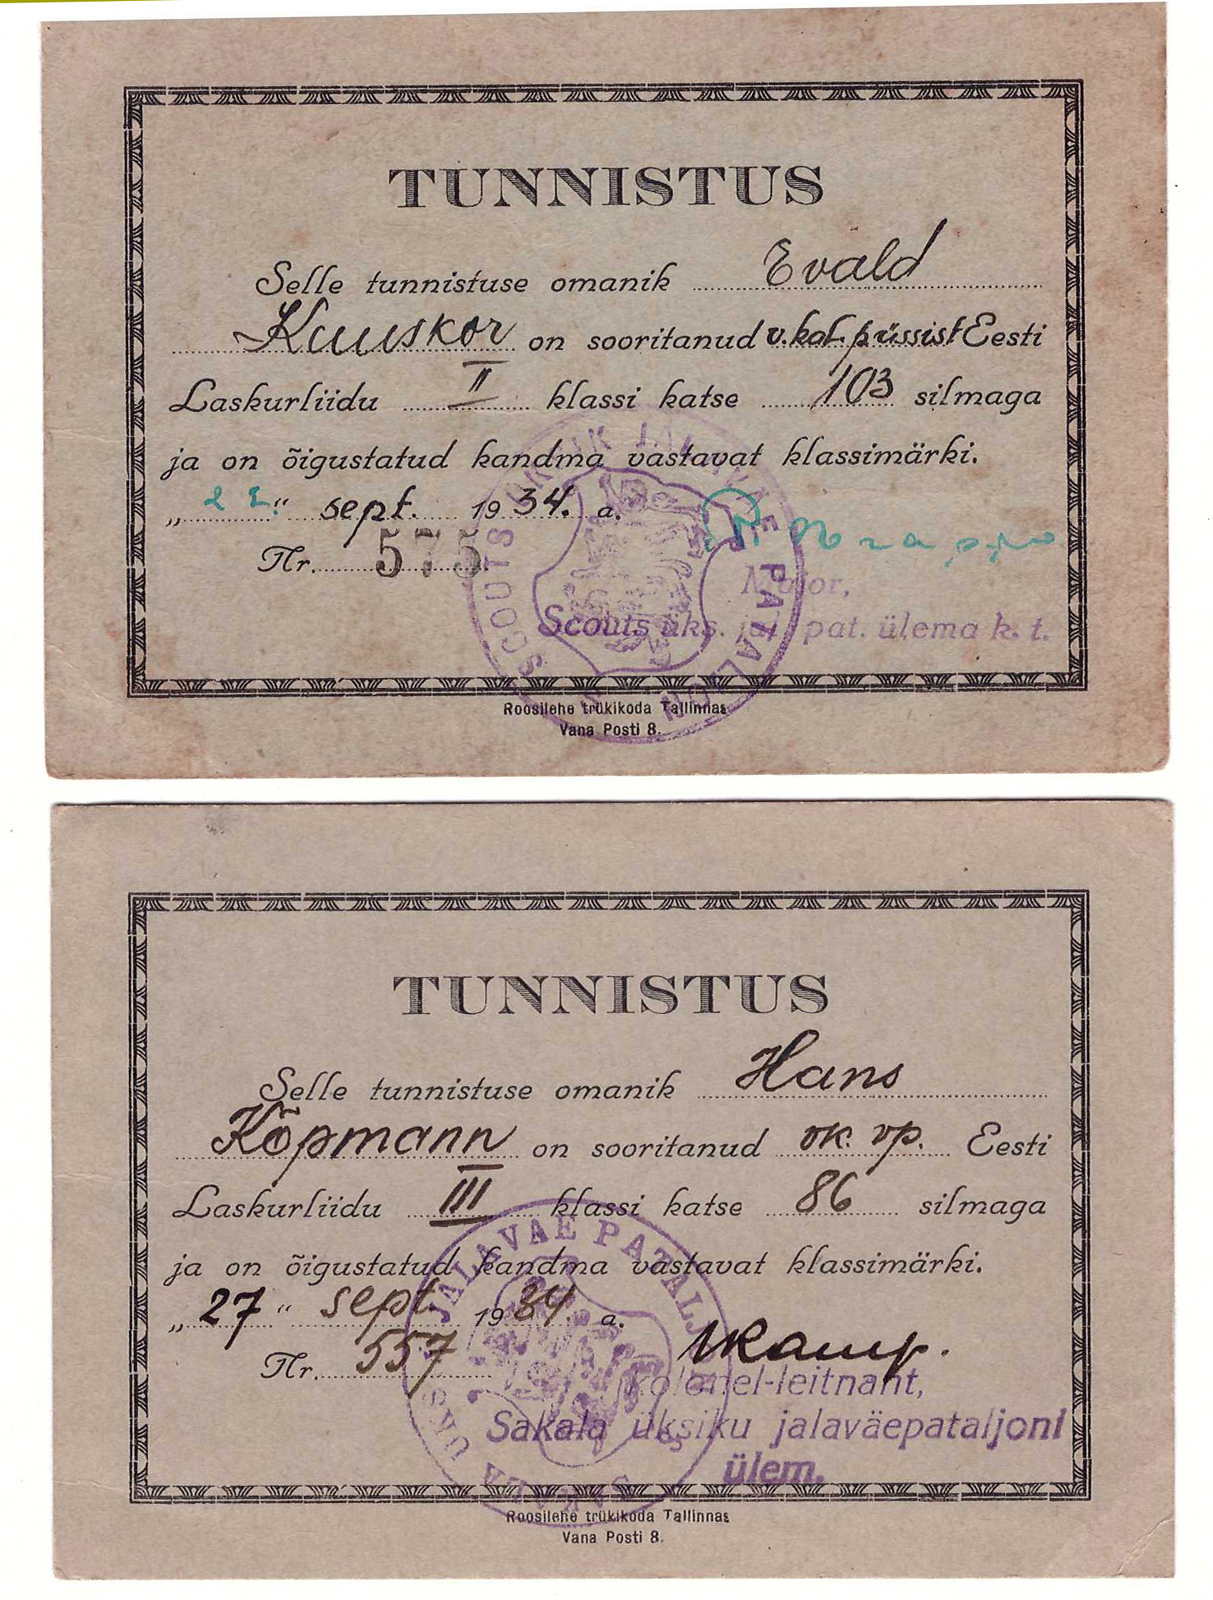 TUNNISTUS
Selle tunnistuse omanik Evald
Kuuskor on sooritanud v.kal. püssist Eesti
Laskurliidu II klassi katse 103 silmaga
ja on õigustatud kandma vastavat klassimärki.
" " sept. 1934. a.
Nr. 575
Major,
Scouts üks. jal. pat. ülema k. t.
SCOUTS ÜKSIK JALAVÄE PATALJON
Roosilehe trükikoda Tallinnas
Vana Posti 8.
TUNNISTUS
Selle tunnistuse omanik Hans
Kõpmann on sooritanud vk. vp. Eesti
Laskurliidu III klassi katse 86 silmaga
ja on õigustatud kandma vastavat klassimärki.
„27" sept. 1934. a.
Nr. 557
Kolonel-leitnant,
Sakala üksiku jalaväepataljoni
ülem.
SAKALA ÜKS. JALAVÄE PATALJ
Roosilehe trükikoda Tallinnas
Vana Posti 8.